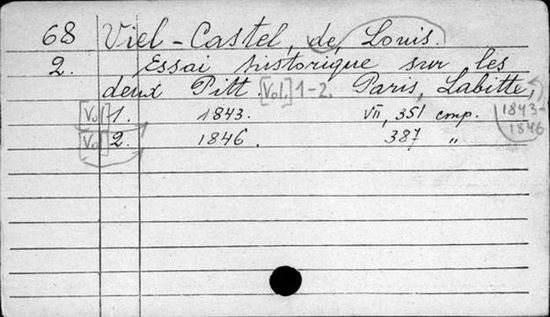 68 Viel-Castel, de, Louis.
2. Essai historique sur les
deux Pitt. [Vol.] 1-2. Paris, Labitte,
[Vol] 1. 1843. VII, 351 стр. 1843-
[Vol] 2. 1846. 387 „ 1846